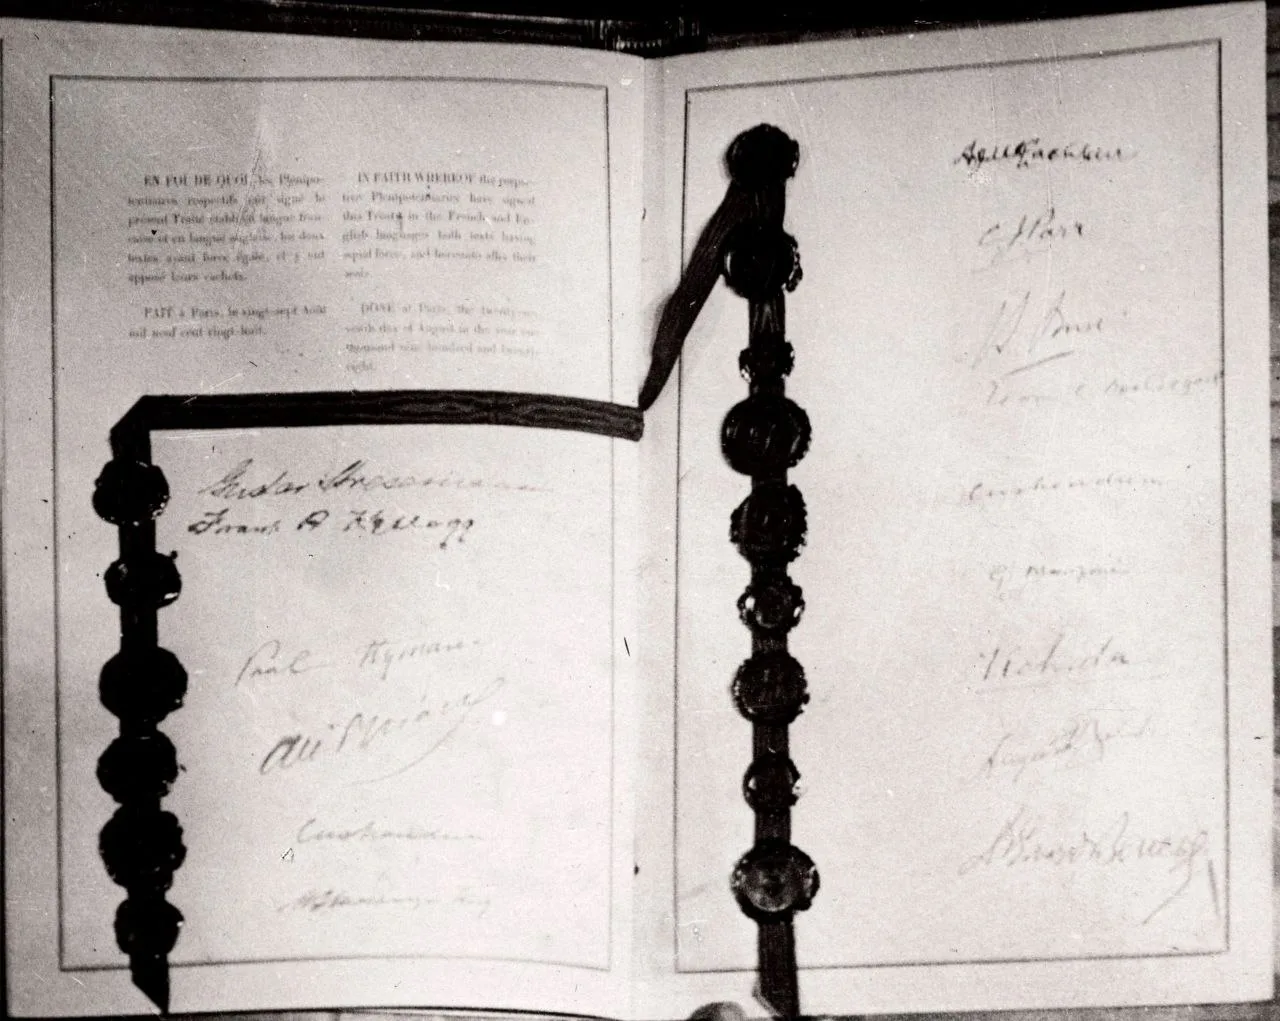 EN FOI DE QUOI, les Plénipo-
tentiaires respectifs ont signé le
présent Traité établi en langue fran-
çaise et en langue anglaise, les deux
textes ayant force égale, et y ont
apposé leurs cachets.
FAIT à Paris, le vingt-sept Août
mil neuf cent vingt-huit.
IN FAITH WHEREOF the respec-
tive Plenipotentiaries have signed
this Treaty in the French and En-
glish languages both texts having
equal force, and hereunto affix their
seals.
DONE at Paris, the twenty-se-
venth day of August in the year one
thousand nine hundred and twenty-
eight.
Gustav Stresemann
Frank B Kellogg
Paul Hymans
Ari Briand
Cushendun
W L Mackenzie King
A J McLachlan
C J Parr
Cushendun
G. Manzoni
Uchida
August Zaleski